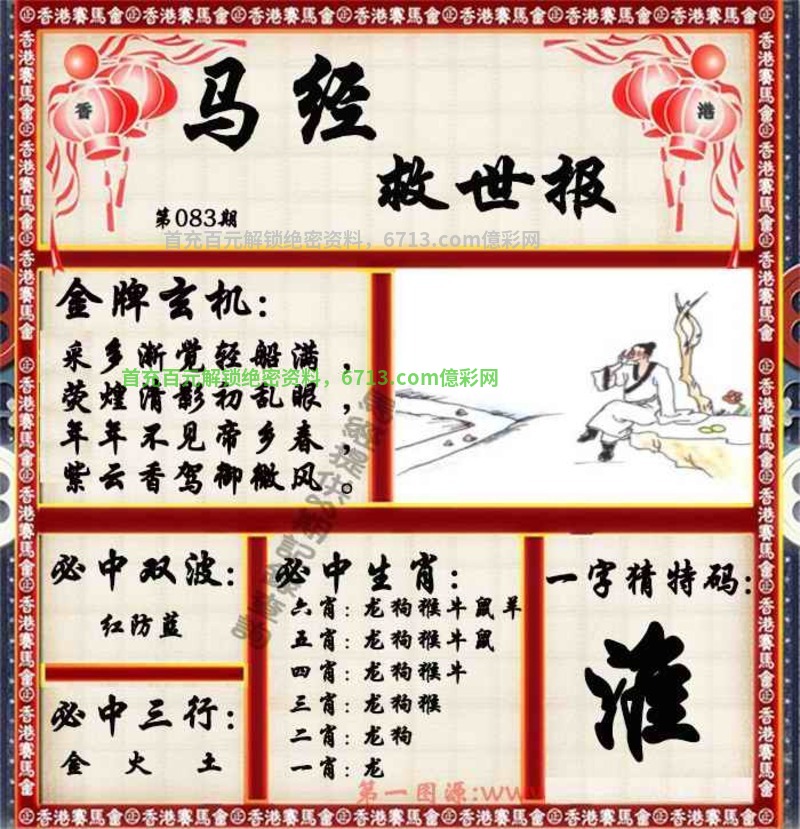 香港賽馬會
香
港
马经
救世报
第083期
首充百元解锁绝密资料，6713.com億彩网
金牌玄机：
采乡渐觉轻船满，
首充百元解锁绝密资料，6713.com億彩网
荧煌清影初乱眼，
年年不见帝乡春，
紫云香驾御微风。
必中双波：
红防蓝
必中三行：
金 火 土
必中生肖：
六肖：龙狗猴牛鼠羊
五肖：龙狗猴牛鼠
四肖：龙狗猴牛
三肖：龙狗猴
二肖：龙狗
一肖：龙
一字猜特码：
淮
第一图源:www